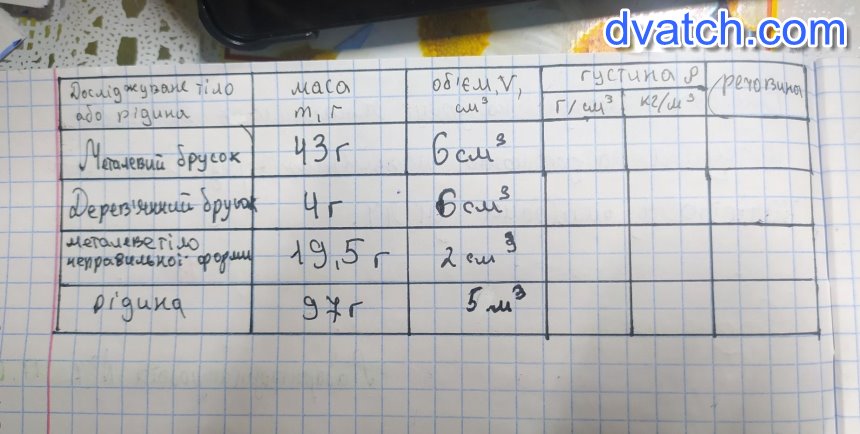 dvatch.com
Досліджуване тіло
або рідина
маса
m, г
об'єм, V,
см³
густина ρ
г/см³
кг/м³
речовина
Металевий брусок
43 г
6 см³
Дерев'янний брусок
4 г
6 см³
металеве тіло
неправильної форми
19,5 г
2 см³
рідина
97 г
5 м³